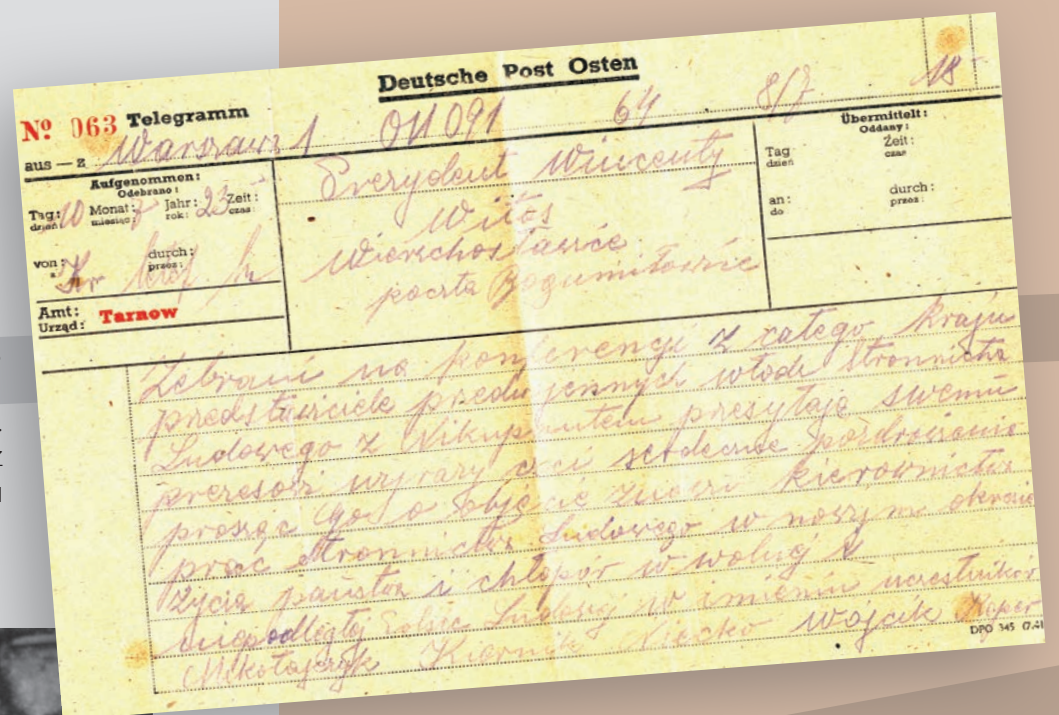 Deutsche Post Osten
№ 063 Telegramm
aus — z Warszawa 1 091 64 8/7 18
Aufgenommen:
Odebrano:
Tag: 10 Monat: 7 Jahr: Zeit:
dzień: miesiąc: rok: czas:
von: durch:
z: przez:
Amt:
Urząd: Tarnow
Prezydent Wincenty
Witos
Wierzchosławice
poczta Bogumiłowice
Übermittelt:
Oddany:
Tag Zeit:
dzień czas
an: durch:
do przez:
Zebrani na konferencji z całego kraju
przedstawiciele przedwojennych władz Stronnictwa
Ludowego z Wikup entem przesyłają swemu
prezesowi wyrazy czci serdeczne pozdrowienia
prosząc Go o objęcie znowu kierownictwa
prac Stronnictwa Ludowego w nowym okresie
życia państwa i chłopów w wolnej i
niepodległej Polsce Ludowej w imieniu uczestników
Mikołajczyk Kiernik Niećko Wójcik
DPO 345 (7.41